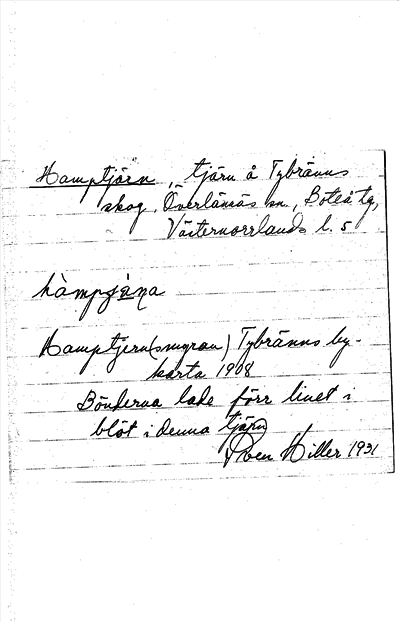 Hamptjärn, tjärn å Tybränns
skog, Överlännäs sn., Boteå tg,
Västernorrlands l. 5
hàmpɟæ̀ɳa
Hamptjern(smyran) Tybränns by-
karta 1908
Bönderna lade förr linet i
blöt i denna tjärn
Sven Hiller 1931